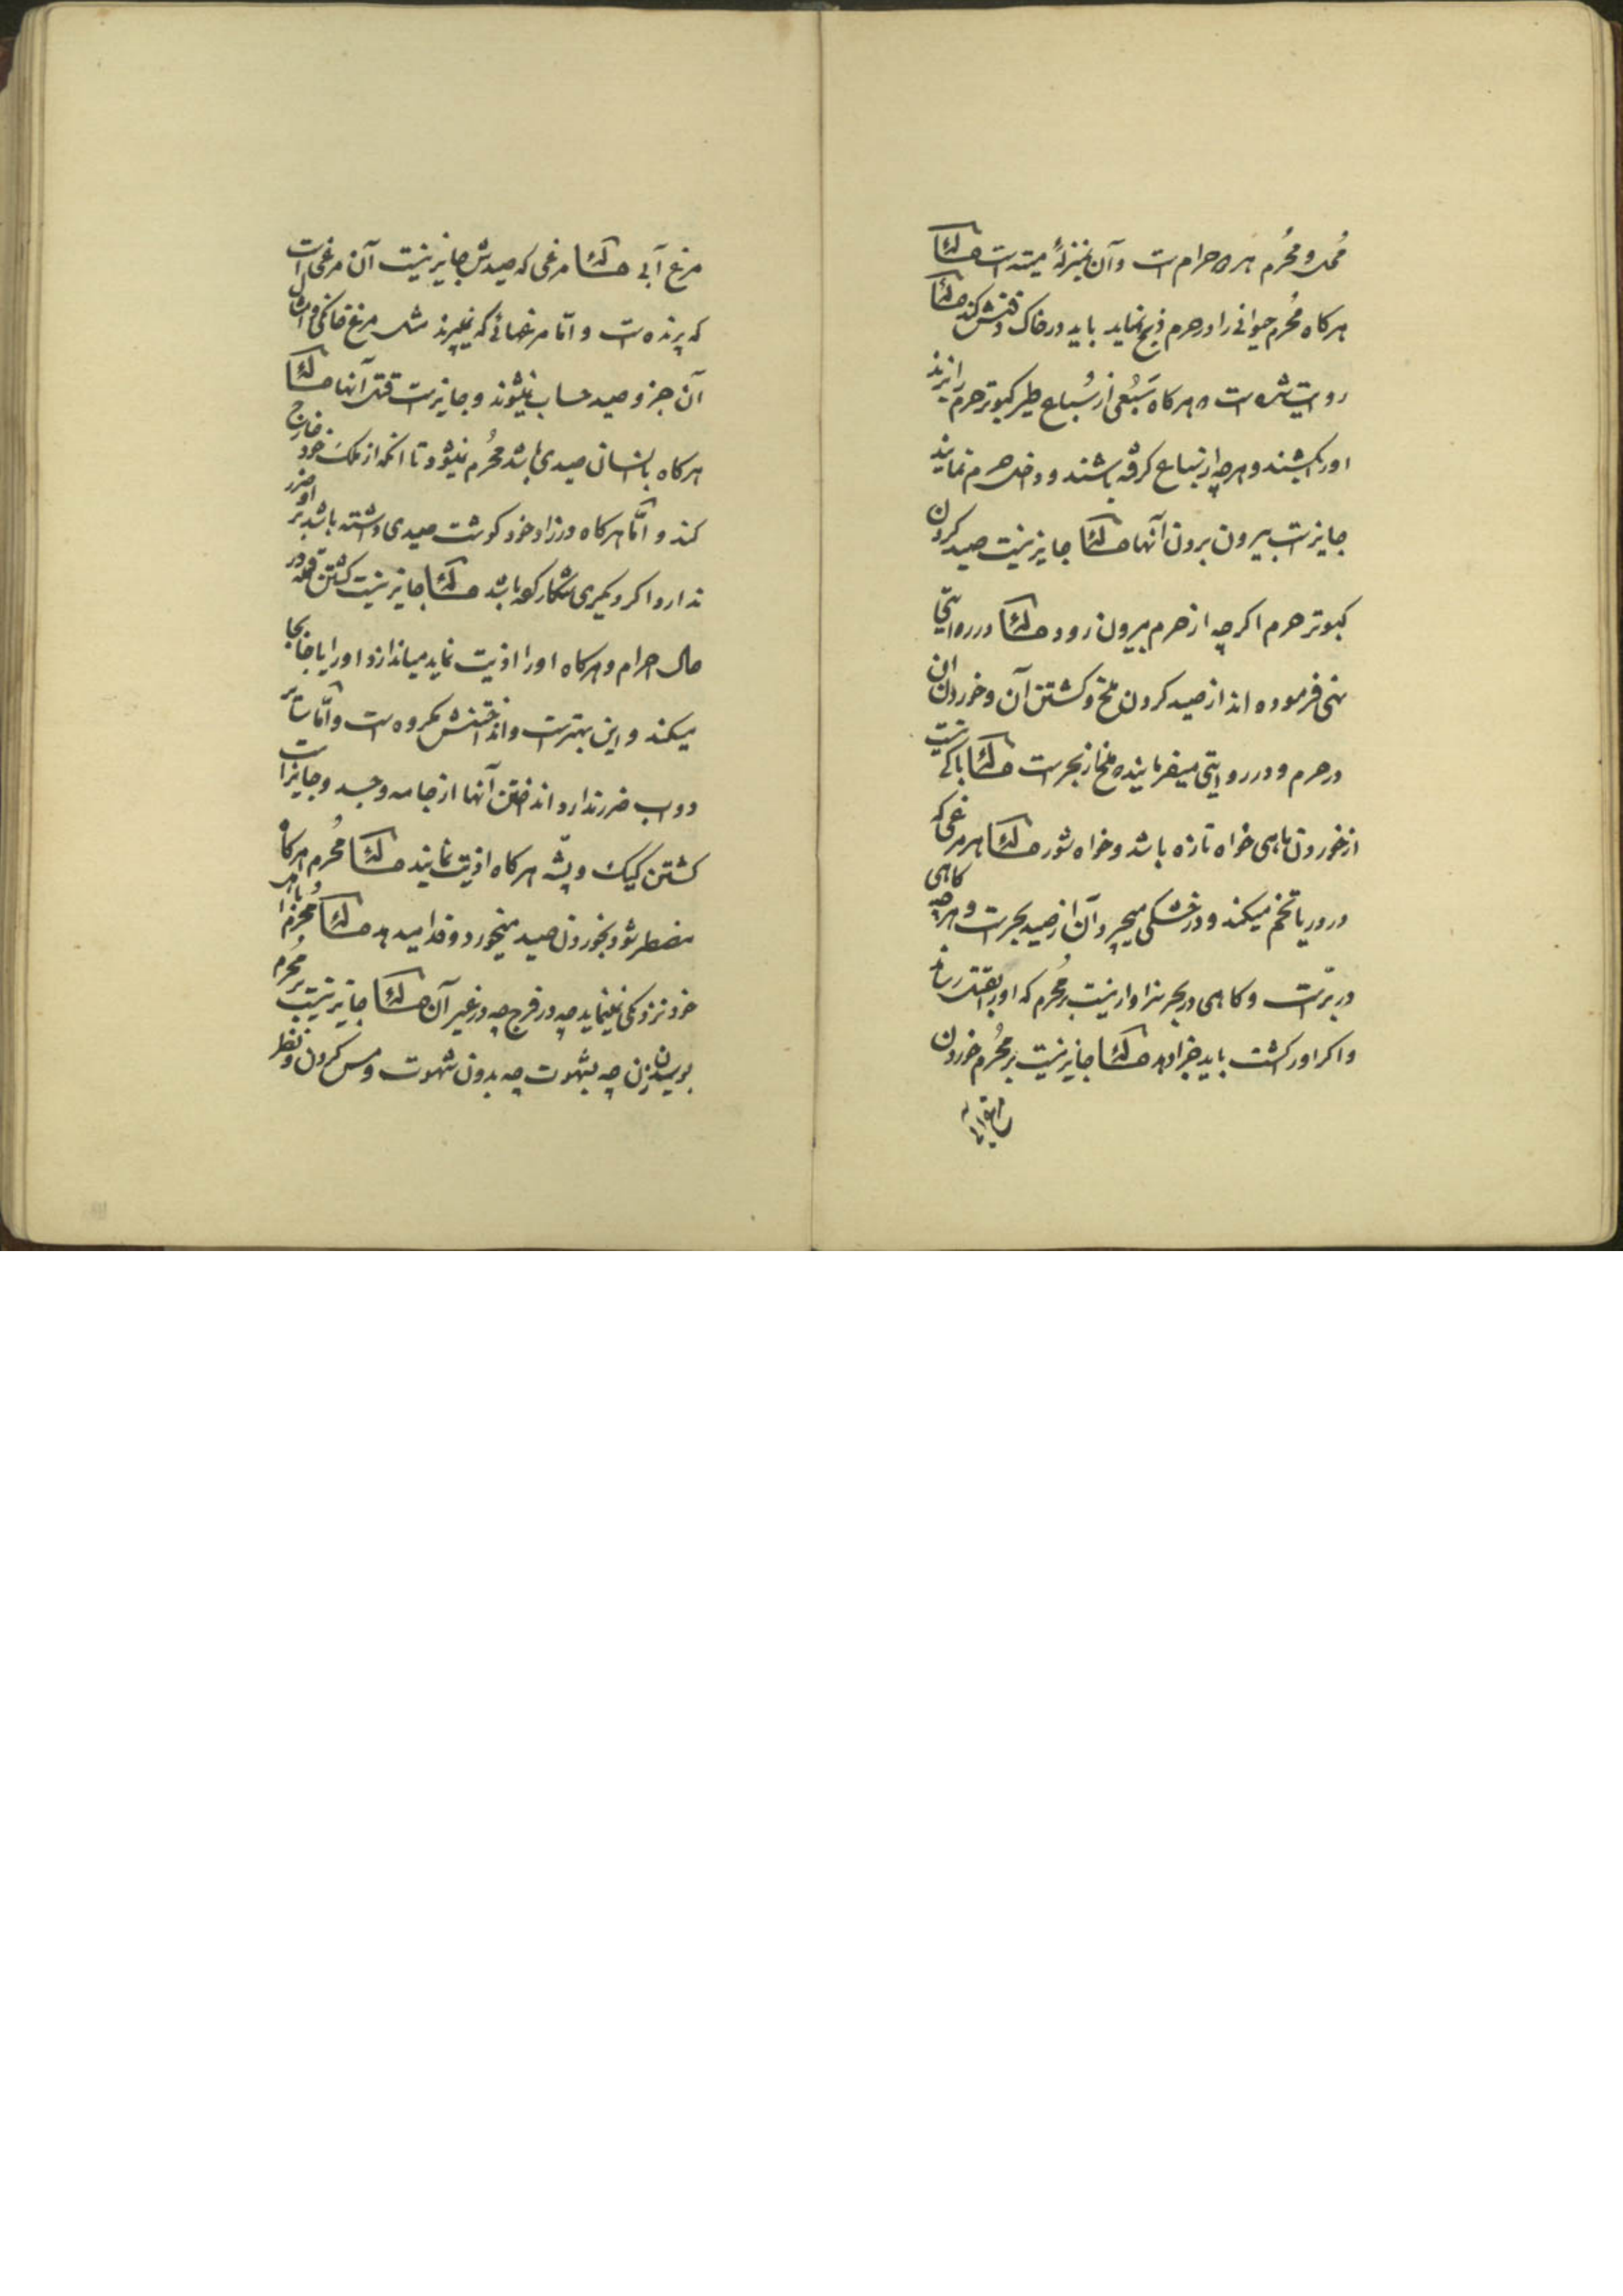 مُحل و مُحرُم هر دو حرام است و آن بمنزلهٔ میته است مسئلة
هرکاه مُحرم حیوانی را در حرم ذبح نماید باید در خاک دفنش کند مسئلة
روایت شده است هرکاه سَبُعی از سُباع طیر کبوتر حرم را بزند
او را بکشند و هرچه از سباع کرفته باشند و داخل حرم نمایند
جایز است بیرون بردن آنها مسئلة جایز نیست صید کردن
کبوتر حرم اکرچه از حرم بیرون رود مسئلة در روایتی
نهی فرموده اند از صید کردن ملخ و کشتن آن و خوردن آن
در حرم و در روایتی میفرمایند ملخ از بحر است مسئلة باکی نیست
از خوردن ماهی خواه تازه باشد و خواه شور مسئلة هر مرغی که
در دریا تخم میکند و در خشکی میچرد آن از صید بحر است و هرچه کاهی
در برّ است و کاهی در بحر سزاوار نیست بر مُحرم که او را بقتل رساند
و اکر او را کشت باید جزا دهد مسئلة جایز نیست بر مُحرم خوردن
مرغ آبی مسئلة مرغی که صیدش جایز نیست آن مرغی است
که پرنده است و امّا مرغهائی که نمیپرند مثل مرغ خانکی و امثال
آن جزو صید حساب نمیشوند و جایز است قتل آنها مسئلة
هرکاه با انسان صیدی باشد مُحرُم نمیشود تا آنکه از ملک خود خارج
کند و امّا هرکاه در زاد خود کوشت صیدی داشته باشد بر او ضرر
ندارد اکر دیکری شکار کرده باشد مسئلة جایز نیست کشتن قمله در
حال احرام و هرکاه او را اذیت نماید میاندازد او را یا جابجا
میکند و این بهتر است و انداختنش مکروه است و امّا سایر
دواب ضرر ندارد انداختن آنها از جامه و جسد و جایز است
کشتن کیک و پشه هرکاه اذیت نمایند مسئلة مُحرم هرکاه
مضطر شود بخوردن صید میخورد و فدا میدهد مسئلة مُحرم با اهل
خود نزدیکی نمینماید چه در فرج چه در غیر آن مسئلة جایز نیست بر مُحرم
بوسیدن زن چه بشهوت چه بدون شهوت و مس کردن و نظر